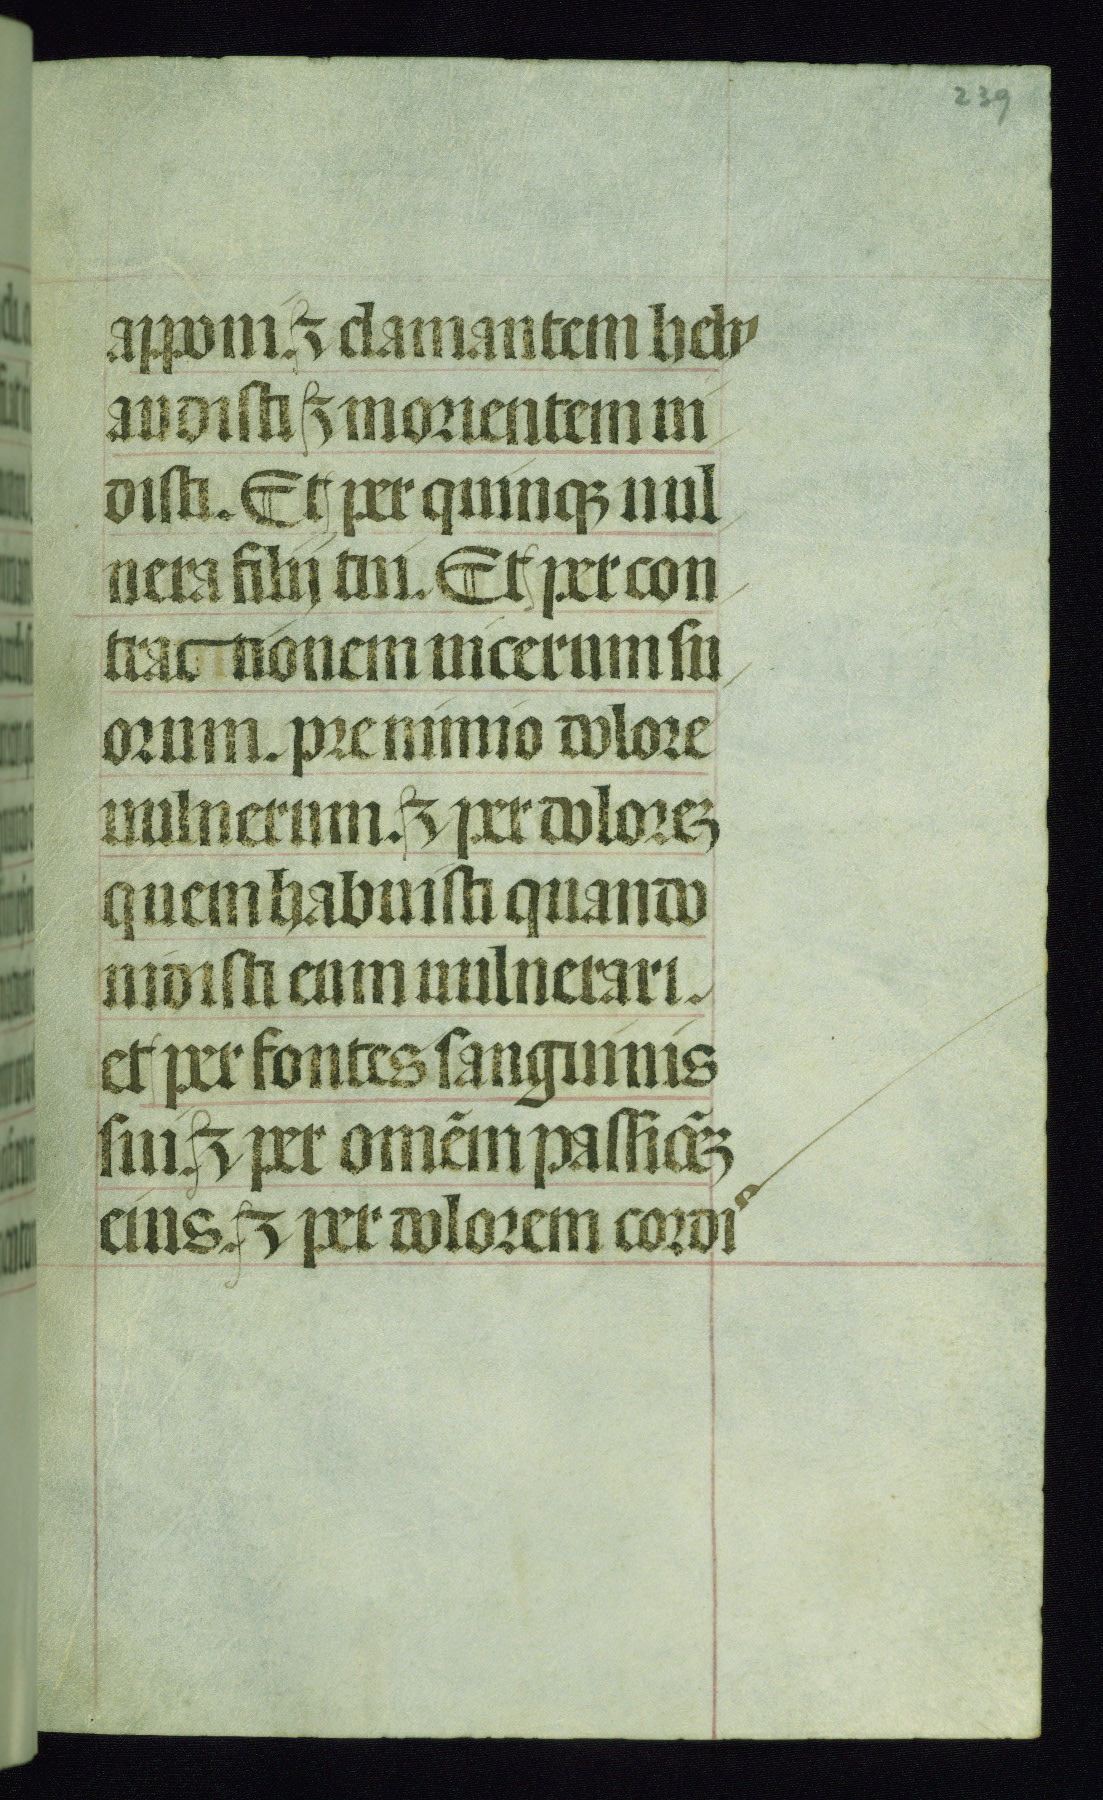 239
apponi. ⁊ clamantem hely
audisti ⁊ morientem ui
disti. Et per quinqꝫ uul
nera filij tui. Et per con
trac tionem uicerum su
orum. pre nimio dolore
uulnerum. ⁊ per doloreꝫ
quem habuisti quando
uidisti eum uulnerari.
et per fontes sanguinis
sui. ⁊ per omēm passiōeꝫ
eius. ⁊ per dolorem cordis